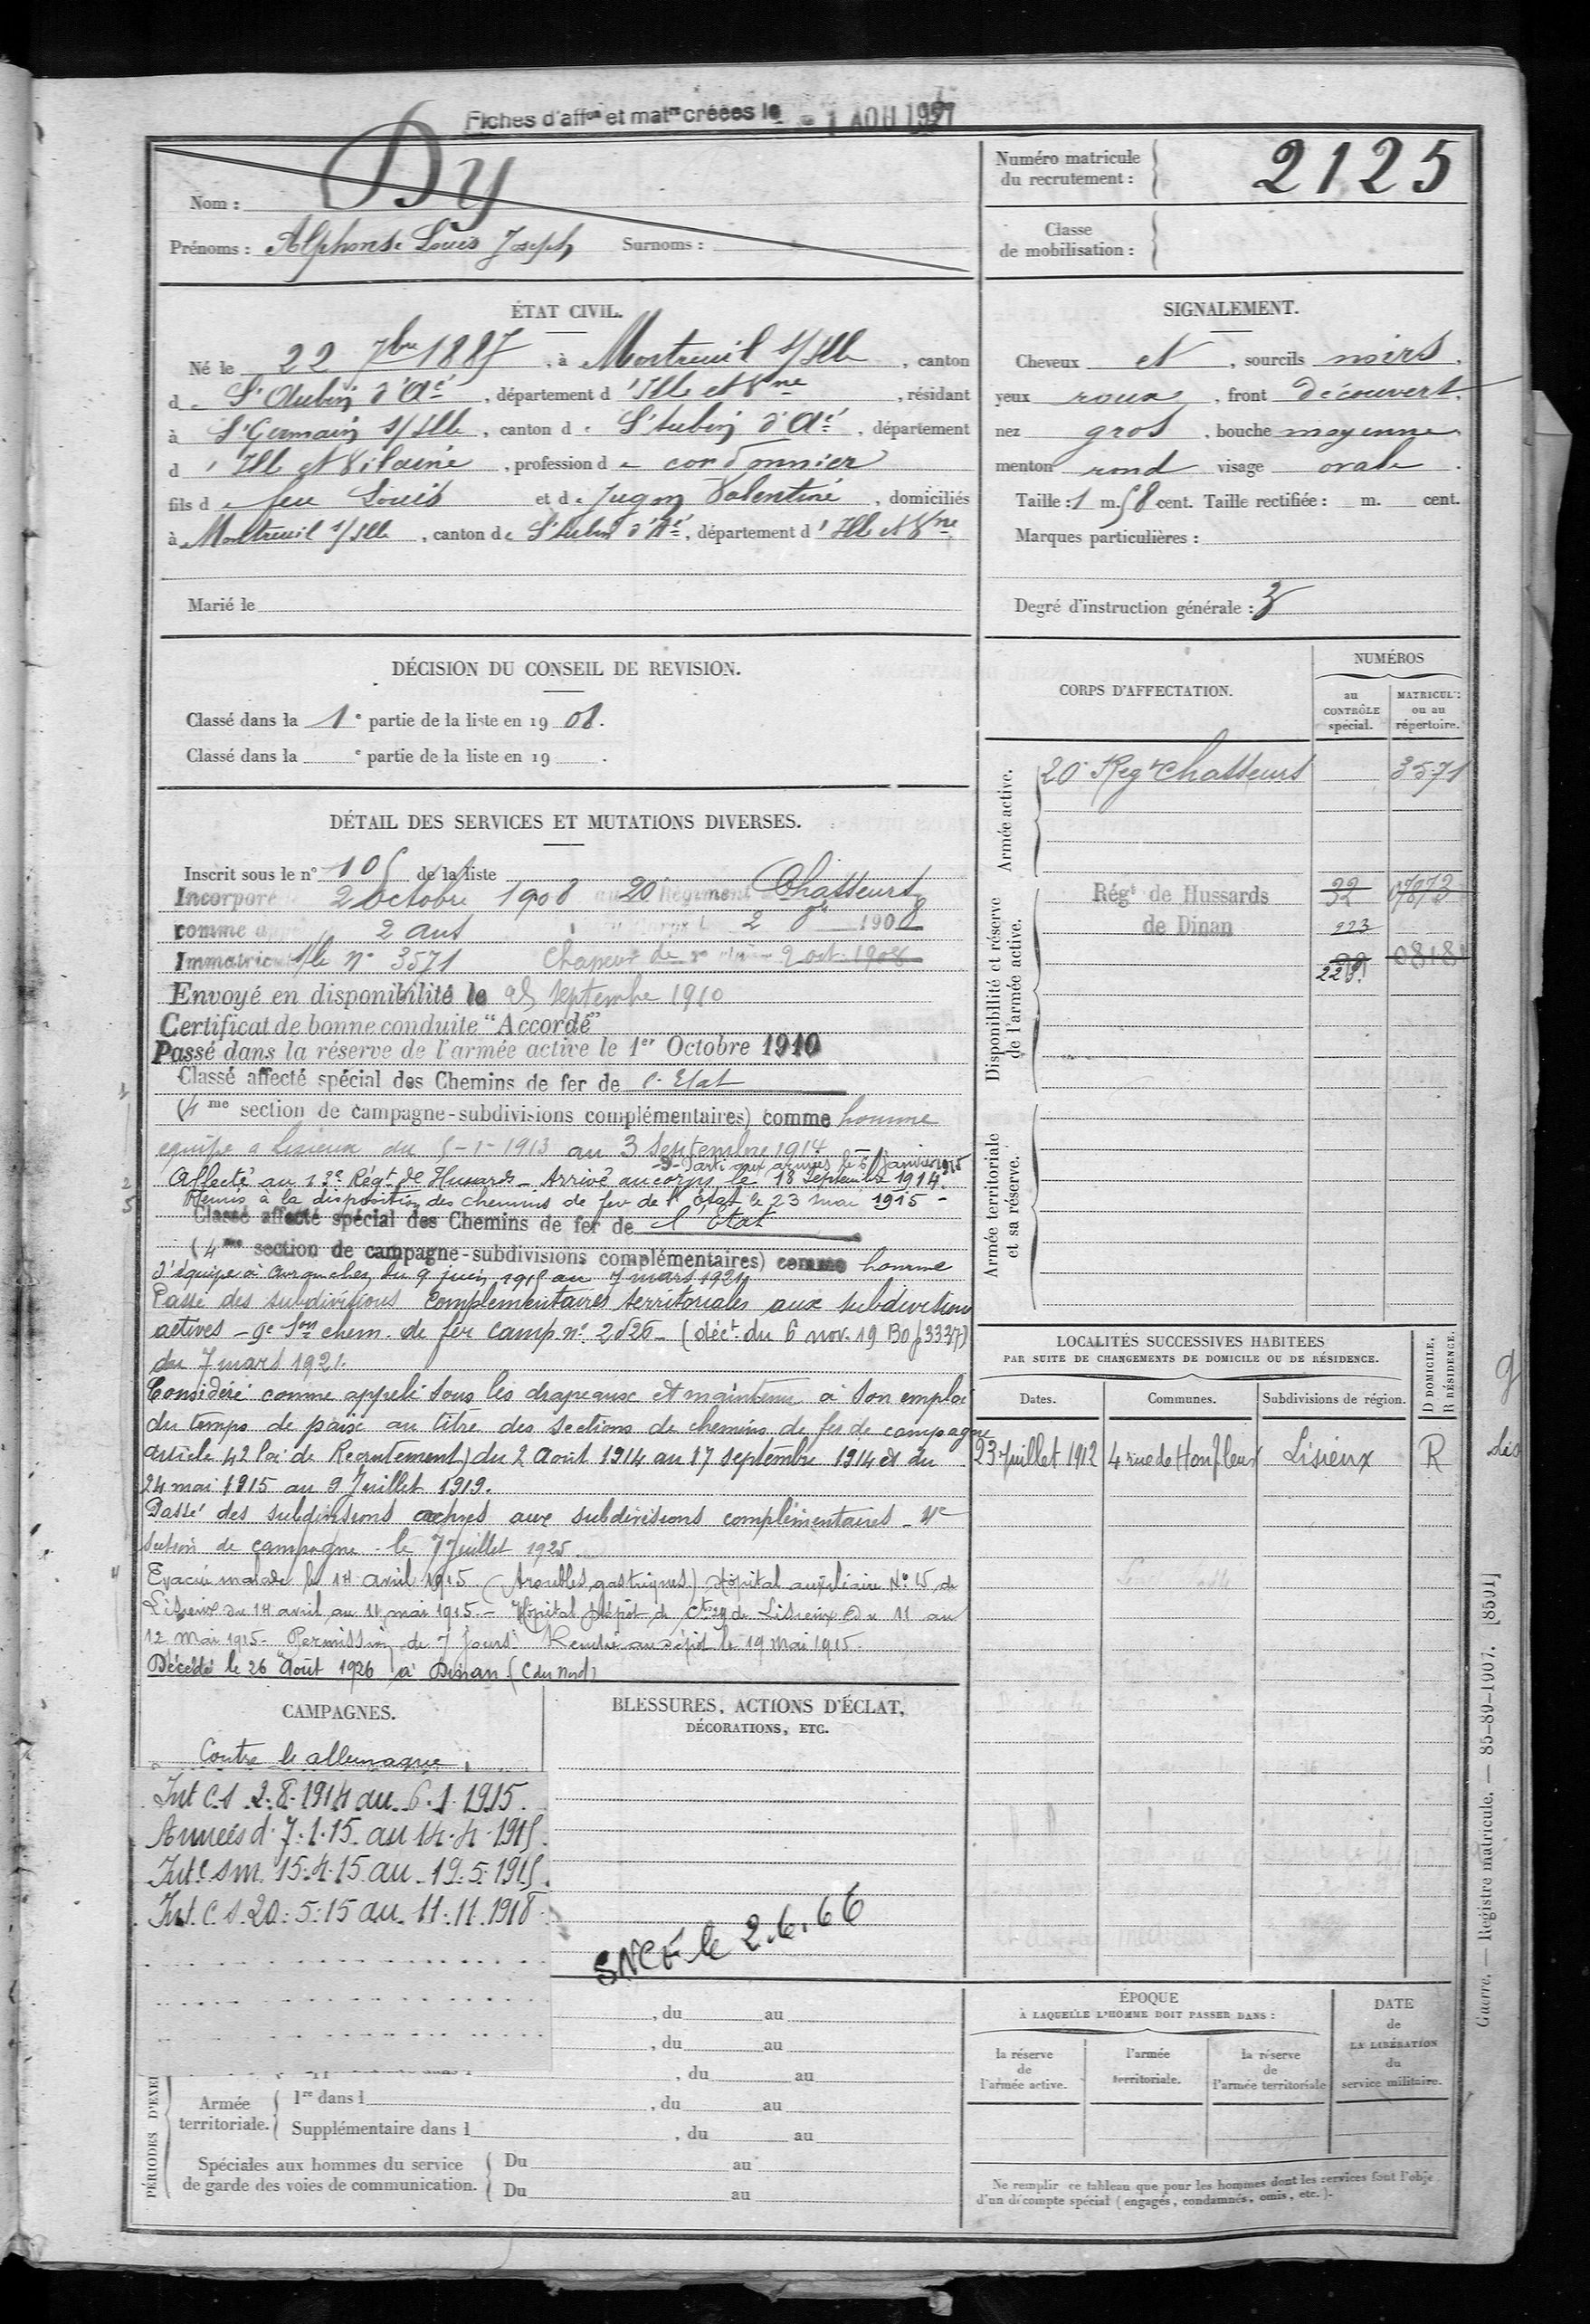 Fiches d'affon et matre créées le - 1 AOU 1927
Nom : Dy
Prénoms : Alphonse Louis Joseph Surnoms :
Numéro matricule du recrutement : 2125
Classe de mobilisation :
ÉTAT CIVIL.
Né le 22 7bre 1887, à Montreuil s/Ille, canton
de St Aubin d'Aé, département d'Ille et Vne, résidant
à St Germain s/Ille, canton de St Aubin d'Aé, département
d'Ille et Vilaine, profession de cordonnier
fils de feu Louis et de Jugon Valentine, domiciliés
à Montreuil s/Ille, canton de St Aubin d'Aé, département d'Ille et Vne
Marié le
SIGNALEMENT.
Cheveux et, sourcils noirs,
yeux roux, front découvert,
nez gros, bouche moyenne,
menton rond visage ovale.
Taille : 1 m. 58 cent. Taille rectifiée : m. cent.
Marques particulières :
Degré d'instruction générale : 3
DÉCISION DU CONSEIL DE REVISION.
Classé dans la 1e partie de la liste en 1908.
Classé dans la e partie de la liste en 19 .
DÉTAIL DES SERVICES ET MUTATIONS DIVERSES.
Inscrit sous le n° 105 de la liste
Incorporé 2 octobre 1908 au 20e Régiment Chasseurs
comme 2 ans 2 8bre 1908
Immatriculé s/le n° 3571 2 oct. 1908
Envoyé en disponibilité le 25 septembre 1910
Certificat de bonne conduite "Accordé"
Passé dans la réserve de l'armée active le 1er Octobre 1910
Classé affecté spécial des Chemins de fer de l'Etat
(4me section de campagne-subdivisions complémentaires) comme homme
équipe a Lisieux du 5-1-1913 au 3 septembre 1914
- Parti aux armées le 6 janvier 1915
Affecté au 13e Régt de Hussards - Arrivé au corps le 18 septembre 1914.
Remis à la disposition des chemins de fer de l'état le 23 mai 1915 -
Classé affecté spécial des Chemins de fer de l'Etat
(4me section de campagne-subdivisions complémentaires) comme homme
d'équipe à Avranches du 9 juin 1915 au 7 mars 1921
Passé des subdivisions complémentaires territoriales aux subdivisions
actives - 9e Son chem. de fer camp. n° 2526 - (déct. du 6 nov. 19 BO p 3337)
du 7 mars 1921.
Considéré comme appelé sous les drapeaux et maintenu à son emploi
du temps de paix au titre des sections de chemins de fer de campagne
article 42 loi de Recrutement) du 2 Août 1914 au 17 septembre 1914 et du
24 mai 1915 au 9 Juillet 1919.
Passé des subdivisions actives aux subdivisions complémentaires - 4e
section de campagne - le 7 Juillet 1925
Evacué malade le 14 avril 1915 (troubles gastriques) Hôpital auxiliaire N° 15 de
Lisieux du 14 avril au 11 mai 1915. - Hôpital Dépôt de de Lisieux du 11 au
12 Mai 1915. Permission de 7 jours. Rentré au dépôt le 19 Mai 1915.
Décédé le 26 Août 1926 à Dinan (C du Nord)
CORPS D'AFFECTATION.
NUMÉROS
au CONTRÔLE spécial.
MATRICULE ou au répertoire.
Armée active.
20e Regt Chasseurs 3571
Disponibilité et réserve de l'armée active.
Régt de Hussards 22 07873
de Dinan 223
2219 08181
Armée territoriale et sa réserve.
LOCALITÉS SUCCESSIVES HABITÉES
PAR SUITE DE CHANGEMENTS DE DOMICILE OU DE RÉSIDENCE.
Dates. Communes. Subdivisions de région. D DOMICILE. R RÉSIDENCE.
23 Juillet 1912 4 rue de Honfleur Lisieux R
CAMPAGNES.
Contre le allemagne
Int C.S 2.8.1914 au 6.1.1915.
Armées d. 7.1.15 au 14.4.1915.
Int. C sm. 15.4.15 au 19.5.1915.
Int. C S. 20.5.15 au 11.11.1918
BLESSURES, ACTIONS D'ÉCLAT,
DÉCORATIONS, ETC.
SNCF le 2.6.66
, du au
, du au
, du au
PÉRIODES D'EXE
Armée territoriale. 1re dans l , du au
Supplémentaire dans l , du au
Spéciales aux hommes du service
de garde des voies de communication.
Du au
Du au
ÉPOQUE
À LAQUELLE L'HOMME DOIT PASSER DANS :
la réserve de l'armée active.
l'armée territoriale.
la réserve de l'armée territoriale
DATE de LA LIBÉRATION du service militaire.
Ne remplir ce tableau que pour les hommes dont les services font l'obje
d'un décompte spécial (engagés, condamnés, omis, etc.).
Guerre. — Registre matricule. — 85-89-1907. [8591]